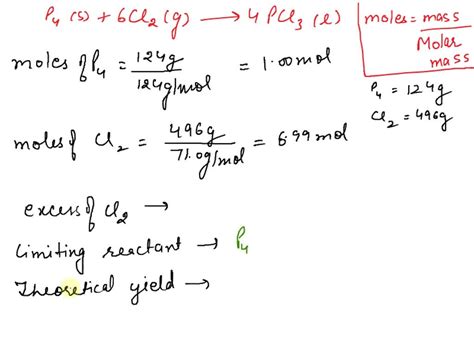 P₄ (s) + 6Cl₂ (g) ⟶ 4 PCl₃ (l)
moles = mass / Molar mass
moles of P₄ = 124g / 124g/mol = 1.00mol
P₄ = 124g
Cl₂ = 496g
moles of Cl₂ = 496g / 71.0g/mol = 6.99 mol
excess of Cl₂ →
Limiting reactant → P₄
Theoretical yield →